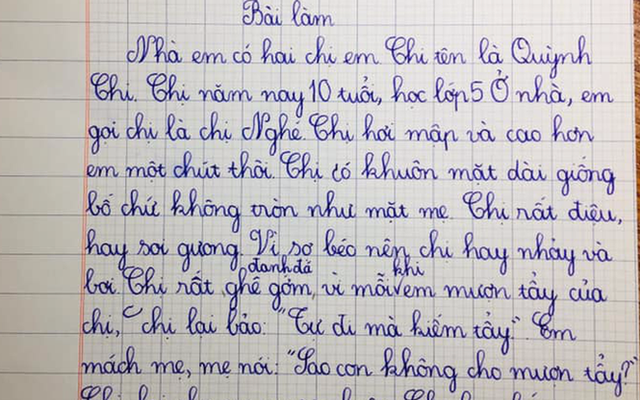 Bài làm
Nhà em có hai chị em. Chị tên là Quỳnh
Chi. Chị năm nay 10 tuổi, học lớp 5 Ở nhà, em
gọi chị là chị Nghé. Chị hơi mập và cao hơn
em một chút thôi. Chị có khuôn mặt dài giống
bố chứ không tròn như mặt mẹ. Chị rất điệu,
hay soi gương. Vì sợ béo nên chị hay nhảy và
bơi. Chị rất đanh đá ghê gớm, vì mỗi khi em mượn tẩy của
chị, chị lại bảo: "Tự đi mà kiếm tẩy". Em
mách mẹ, mẹ nói: "Sao con không cho mượn tẩy?"